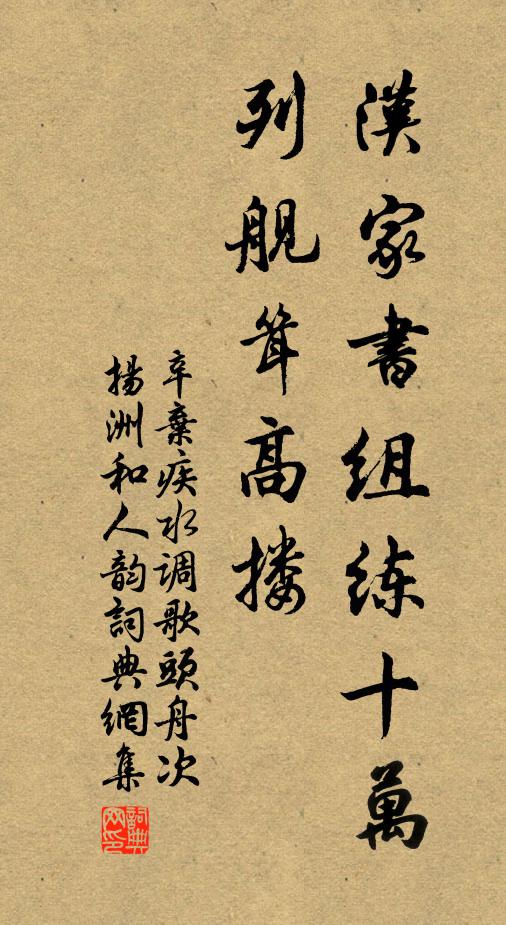 漢家書組练十萬
列舰耸高搂
辛棄疾水调歌頭舟次
揚洲和人韵詞典網集
詞典网印